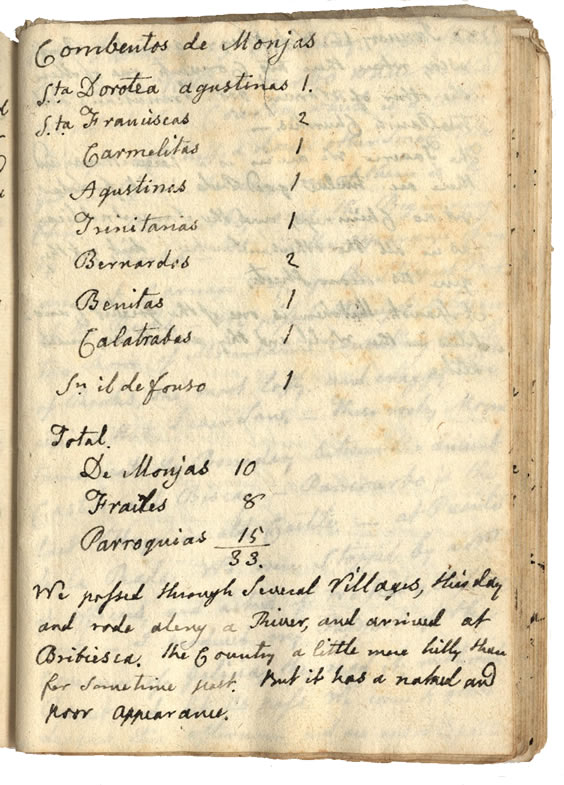 Combentos de Monjas
Sta Dorotea agustinas 1.
Sta Franciscas 2
Carmelitas 1
Agustinas 1
Trinitarias 1
Bernardos 2
Benitas 1
Calatrabas 1
Sn ildefonso 1
Total.
De Monjas 10
Frailes 8
Parroquias 15
33.
We passed through Several Villages, this day
and rode along a River, and arrived at
Bribiesca. the Country a little more hilly than
for sometime past. But it has a naked and
poor appearance.